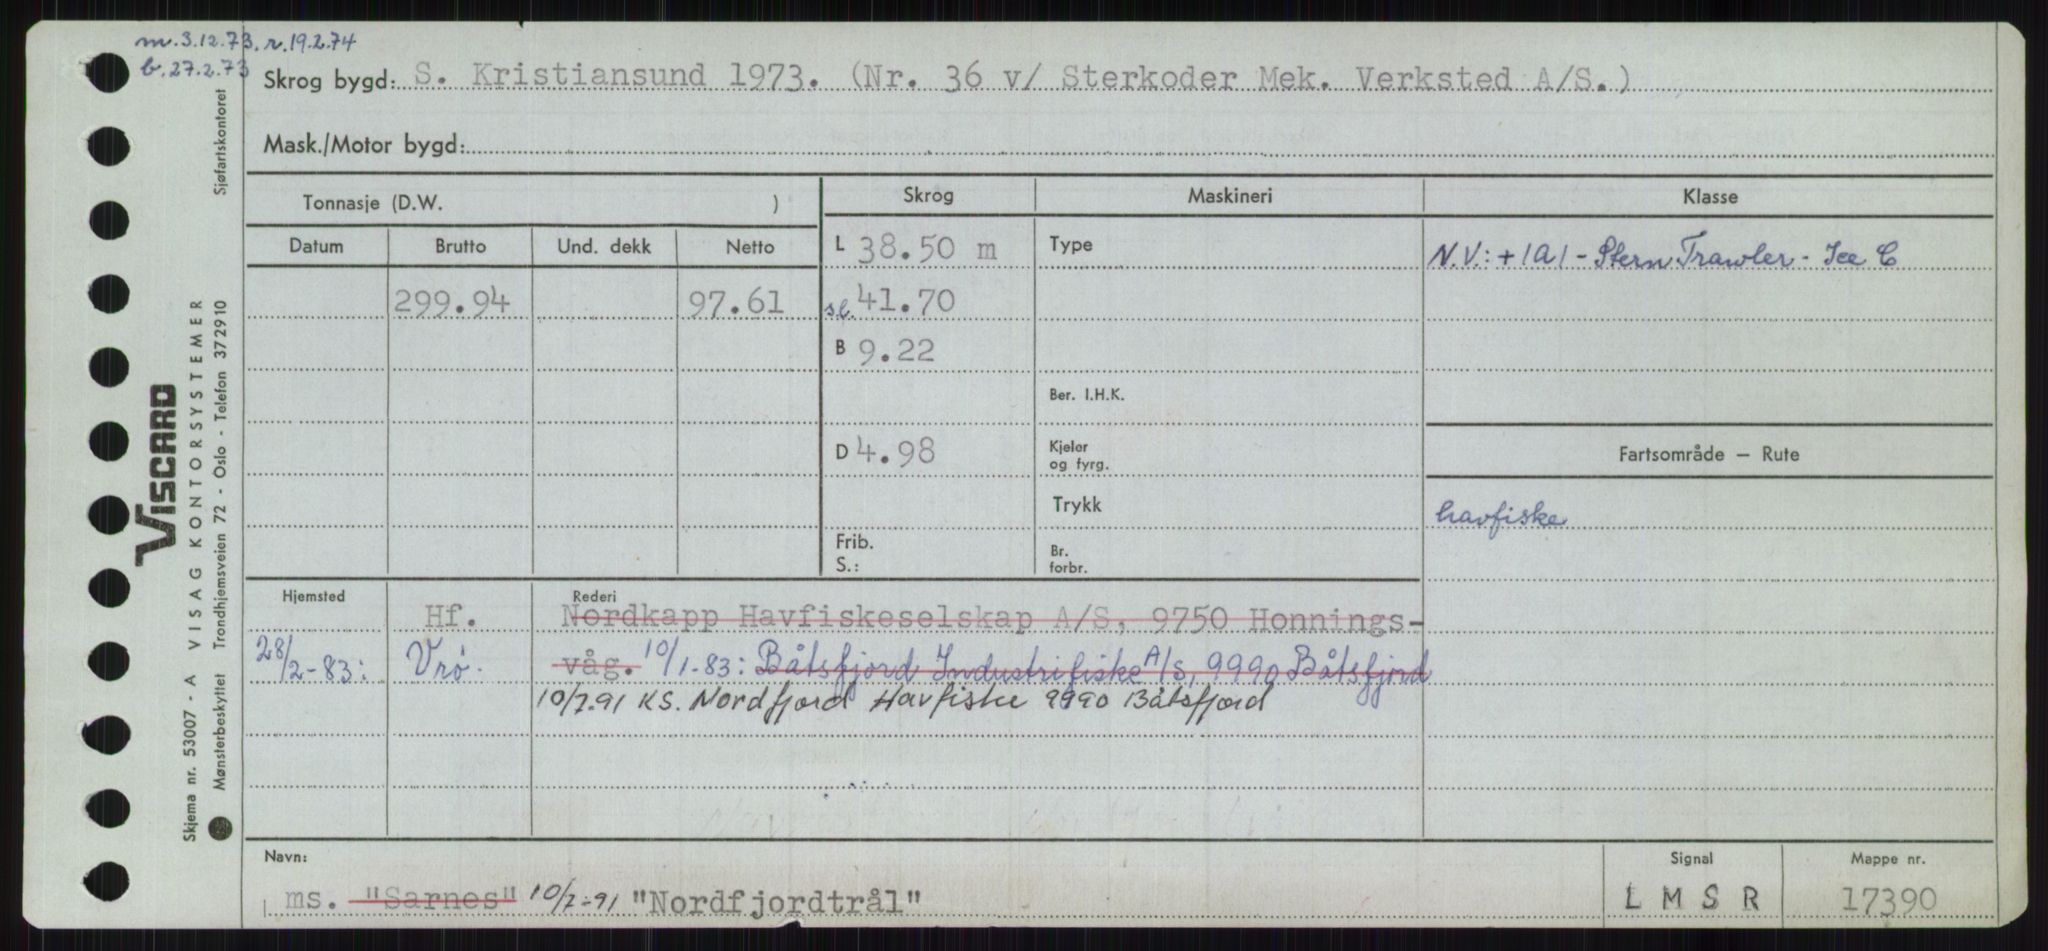 m. 3.12.73. r. 19.2.74
b. 27.2.73
Skrog bygd: S. Kristiansund 1973. (Nr. 36 v/ Sterkoder Mek. Verksted A/S.)
Mask./Motor bygd:
Tonnasje (D.W. )
Skrog
Maskineri
Klasse
Datum
Brutto
Und. dekk
Netto
L 38.50 m
Type
N.V.: + 1A1 - Stern Trawler - Ice C
299.94
97.61
sl. 41.70
B 9.22
Ber. I.H.K.
D 4.98
Kjeler
og fyrg.
Fartsområde — Rute
Trykk
havfiske
Frib.
S.:
Br.
forbr.
Hjemsted
Rederi
Hf.
Nordkapp Havfiskeselskap A/S, 9750 Honnings-
28/2-83: Vrø.
våg. 10/1-83: Båtsfjord Industrifiske A/S, 9990 Båtsfjord
10/7.91 KS. Nordfjord Havfiske 9990 Båtsfjord
Navn:
Signal
Mappe nr.
ms. "Sarnes" 10/7-91 "Nordfjordtrål"
L M S R
17390
VISCARD
Skjema nr. 53007 - A VISAG KONTORSYSTEMER
Mønsterbeskyttet Trondhjemsveien 72 - Oslo - Telefon 372910
Sjøfartskontoret